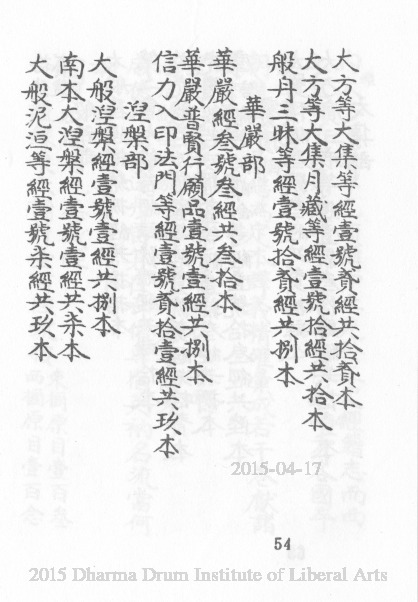 大方等大集等經壹號貳經共拾貳本
大方等大集月藏等經壹號拾經共拾本
般舟三昧等經壹號拾貳經共捌本
華嚴部
華嚴經叁號叁經共叁拾本
華嚴普賢行願品壹號壹經共捌本
信力入印法門等經壹號貳拾壹經共玖本
涅槃部
大般涅槃經壹號壹經共捌本
南本大涅槃經壹號壹經共柒本
大般泥洹等經壹號柒經共玖本
2015-04-17
54
2015 Dharma Drum Institute of Liberal Arts